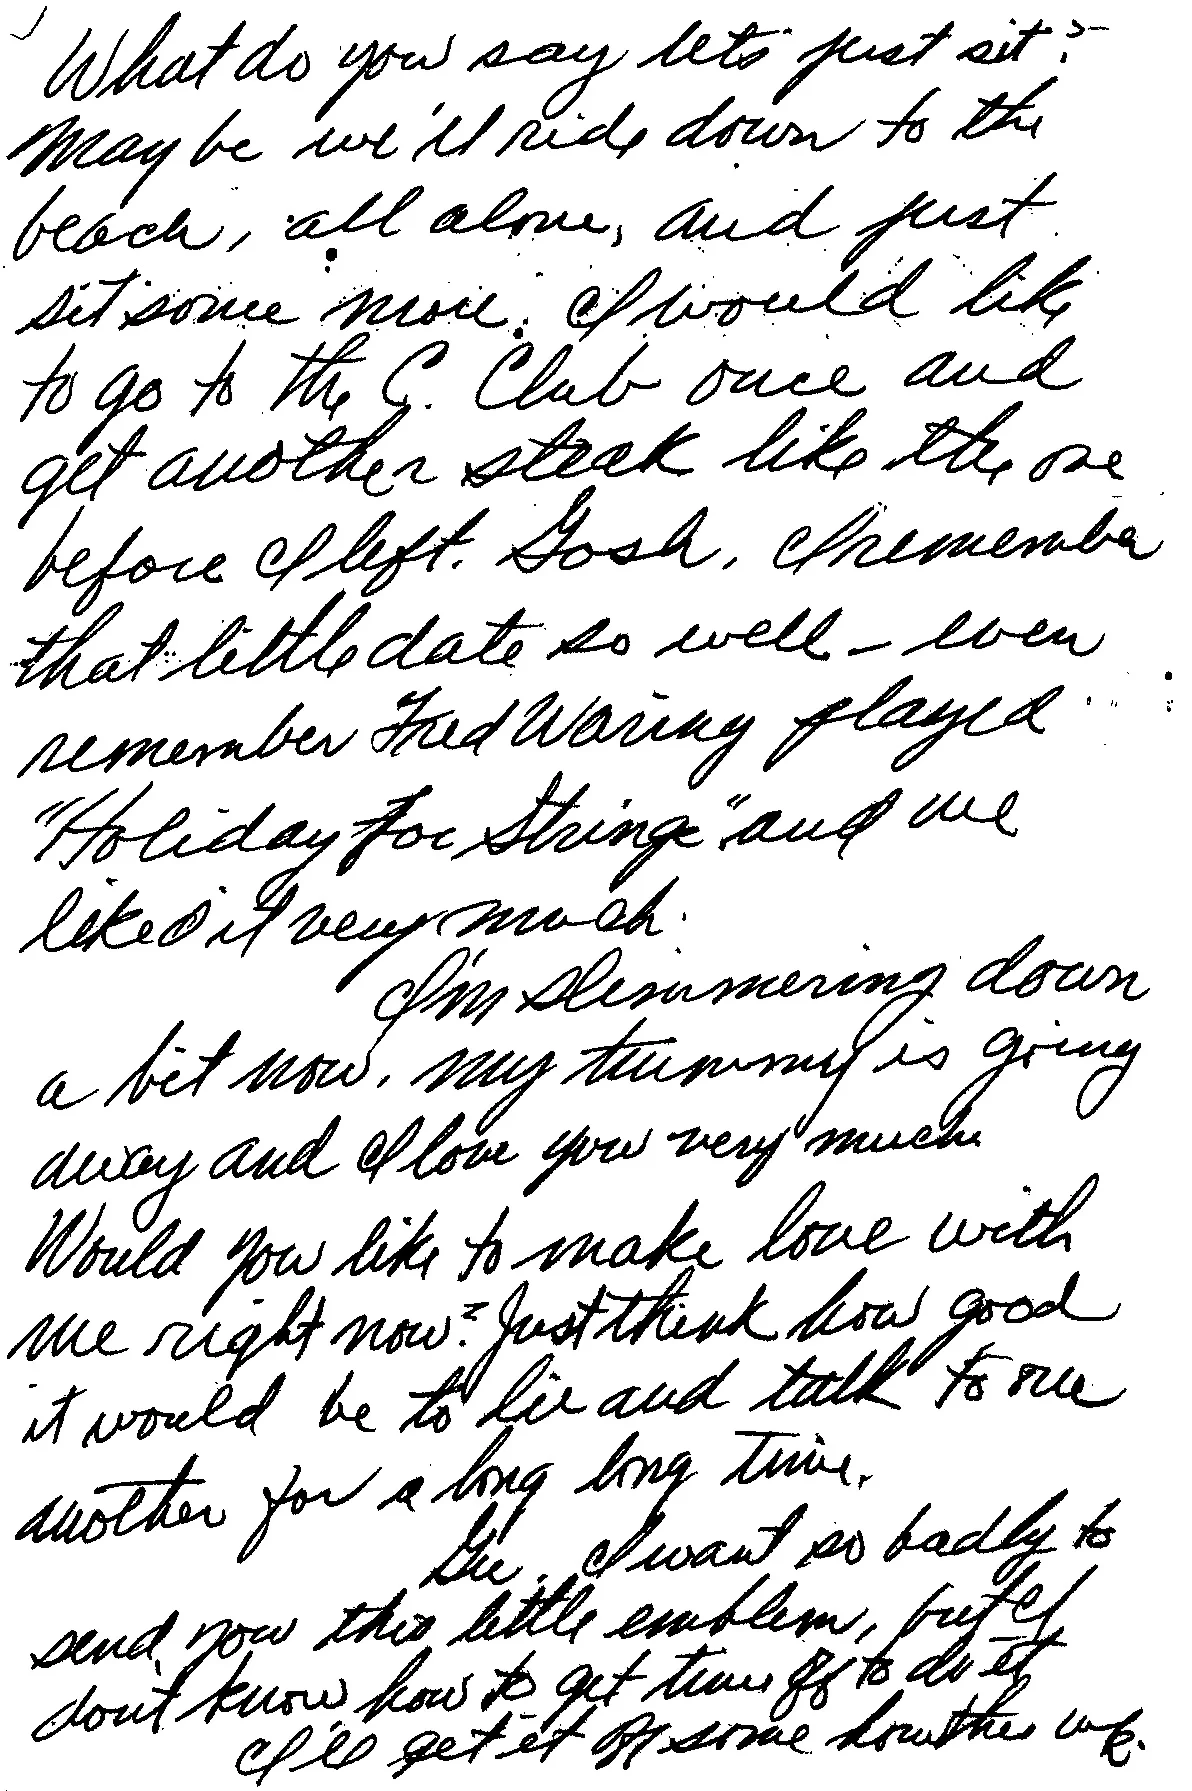 What do you say lets just sit?
Maybe we'll ride down to the
beach, all alone, and just
sit some more. I would like
to go to the C. Club once and
get another steak like the one
before I left. Gosh, I remember
that little date so well - even
remember Fred Waring played
"Holiday for Strings" and we
liked it very much.
I'm slimmering down
a bit now. My tummy is going
away and I love you very much.
Would you like to make love with
me right now? Just think how good
it would be to lie and talk to one
another for a long long time.
Gee, I want so badly to
send you this little emblem, but I
don't know how to get time off to do it
I'll get it off some how this wk.